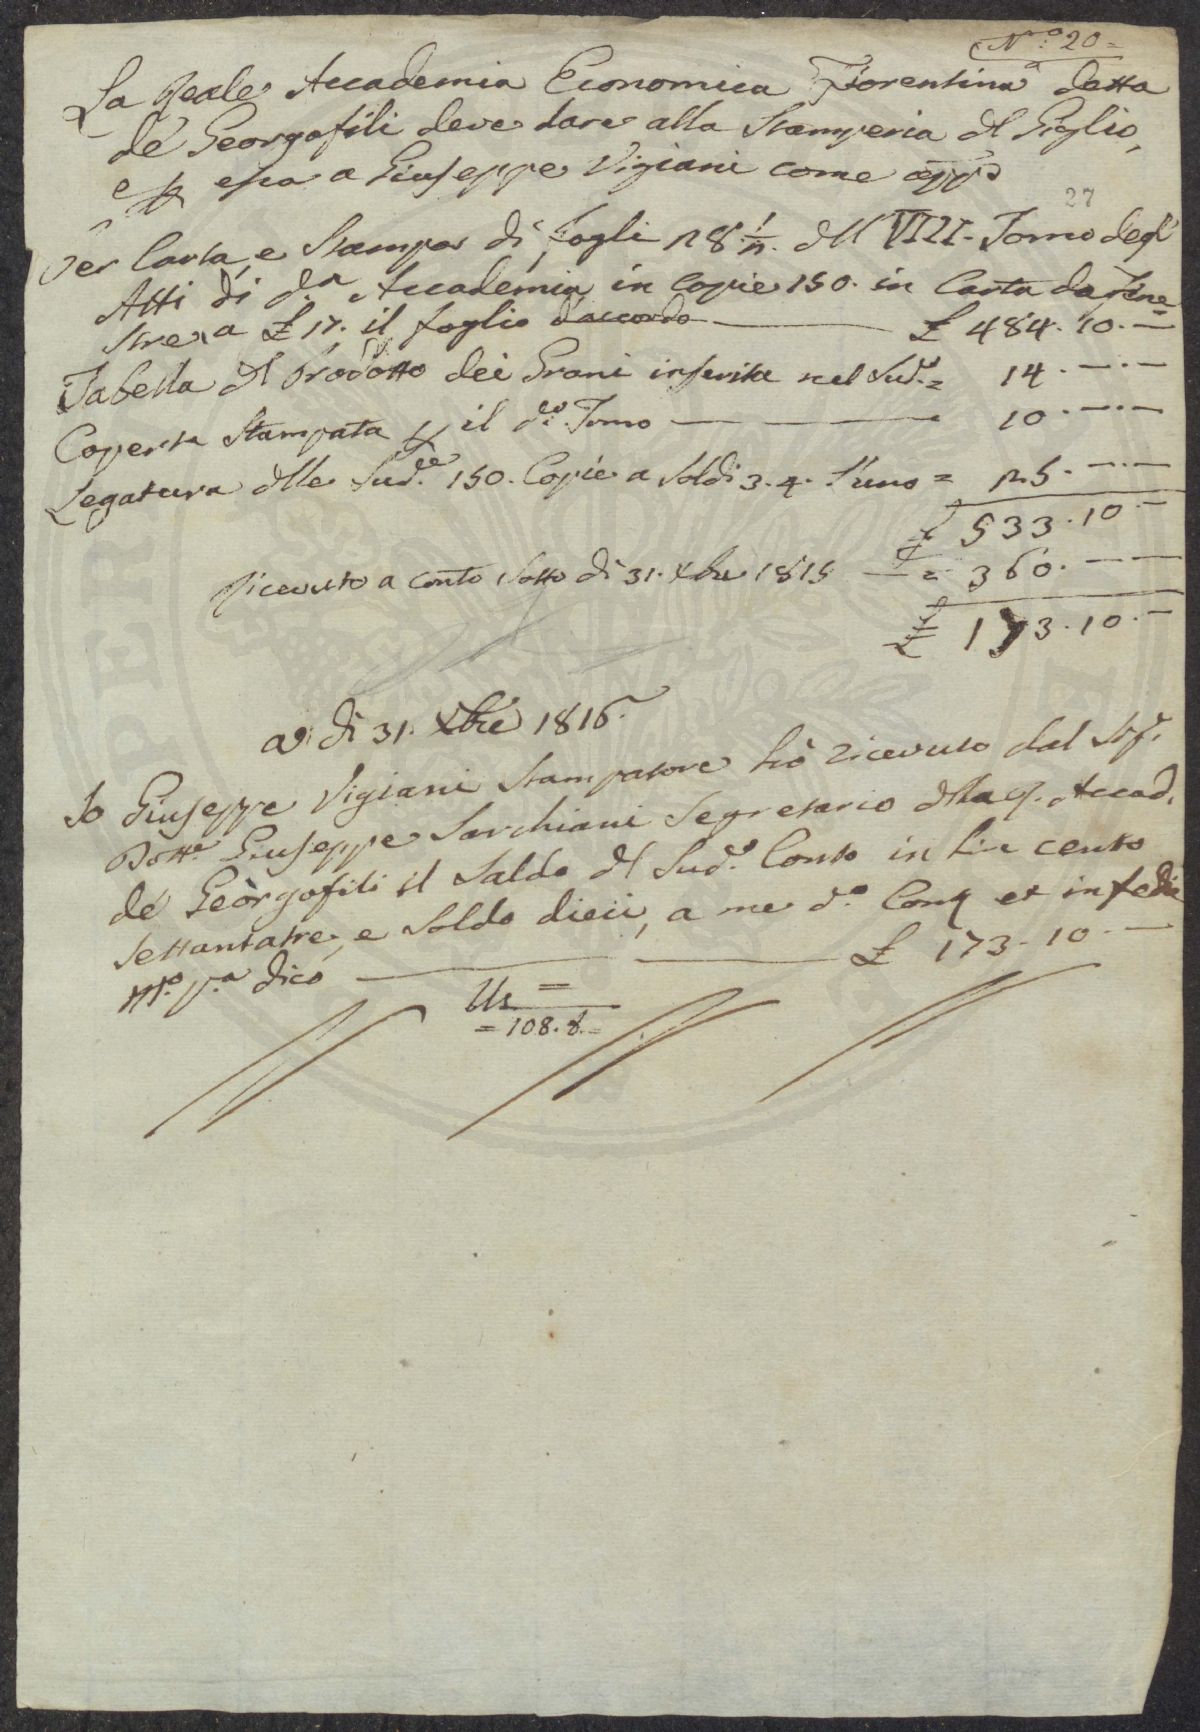 N.º 20=
La Reale Accademia Economica Fiorentina detta
de' Georgofili deve dare alla Stamperia del Giglio,
e p essa a Giuseppe Vigiani come app.º
27
Per Carta, e Stampa di fogli 28 1/2. del VIII. Tomo degl'
Atti di d.ª Accademia in copie 150. in Carta da Fine=
stre, a £ 17. il foglio d'accordo £ 484.10.—
Tabella del Prodotto dei Grani inserita nel Sud.º = 14.—.—
Coperta Stampata p il d.º Tomo 10.—.—
Legatura delle Sud.e 150. Copie a Soldi 3.4. l'uno = 25.—.—
£ 533.10.—
Ricevuto a conto sotto dì 31. Xbre 1815 — = 360.—.—
£ 173.10.—
a dì 31. Xbre 1816.
Io Giuseppe Vigiani Stampatore hò ricevuto dal Sig.r
Dott.e Giuseppe Sarchiani Segretario della Accad.
de' Georgofili il Saldo del Sud.º Conto in Lire cento
settantatre, e soldo dieci, a me d.º Cont et in fede
M.º p.ª dico £ 173.10.—
=108.8.=